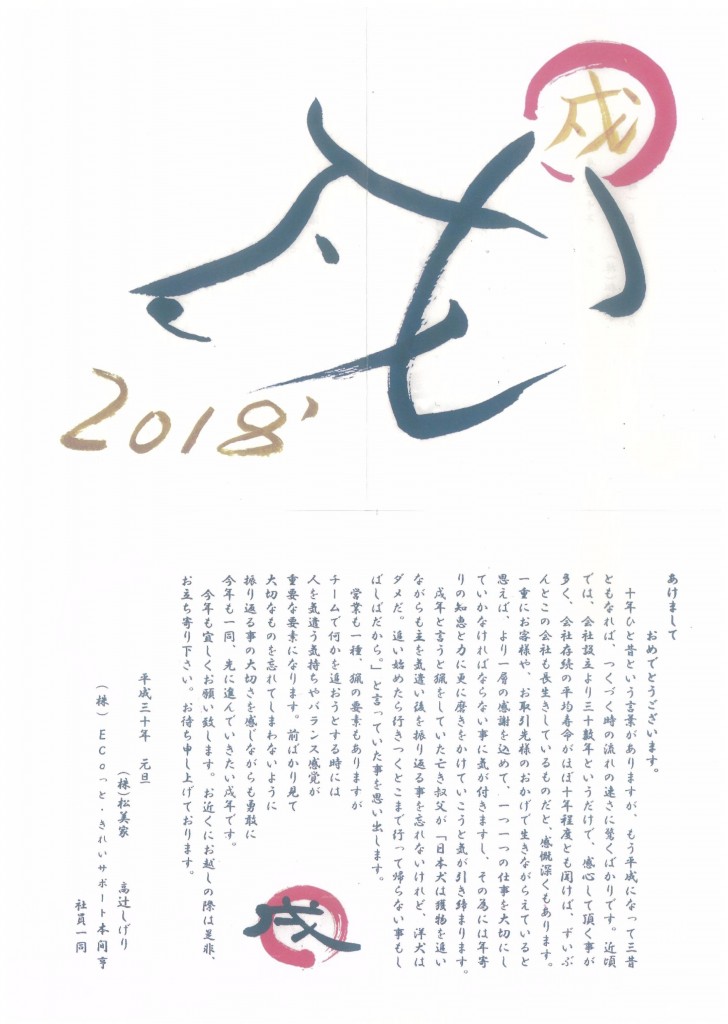 戌
2018
あけまして
おめでとうございます。
十年ひと昔という言葉がありますが、もう平成になって三昔
ともなれば、つくづく時の流れの速さに驚くばかりです。近頃
では、会社設立より三十数年というだけで、感心して頂く事が
多く、会社存続の平均寿命がほぼ十年程度とも聞けば、ずいぶ
んとこの会社も長生きしているものだと、感慨深くもあります。
一重にお客様や、お取引先様のおかげで生きながらえていると
思えば、より一層の感謝を込めて、一つ一つの仕事を大切にし
ていかなければならない事に気が付きますし、その為には年寄
りの知恵と力に更に磨きをかけていこうと気が引き締まります。
戌年と言うと猟をしていた亡き叔父が「日本犬は獲物を追い
ながらも主を気遣い後を振り返る事を忘れないけれど、洋犬は
ダメだ。追い始めたら行きつくとこまで行って帰らない事もし
ばしばだから。」と言っていた事を思い出します。
営業も一種、猟の要素もありますが
チームで何かを追おうとする時には
人を気遣う気持ちやバランス感覚が
重要な要素になります。前ばかり見て
大切なものを忘れてしまわないように
振り返る事の大切さを感じながらも勇敢に
今年も一同、先に進んでいきたい戌年です。
今年も宜しくお願い致します。お近くにお越しの際は是非、
お立ち寄り下さい。お待ち申し上げております。
戌
平成三十年 元旦
(株)松美家 高辻しげり
(株)ECoっと・きれいサポート本間亨
社員一同